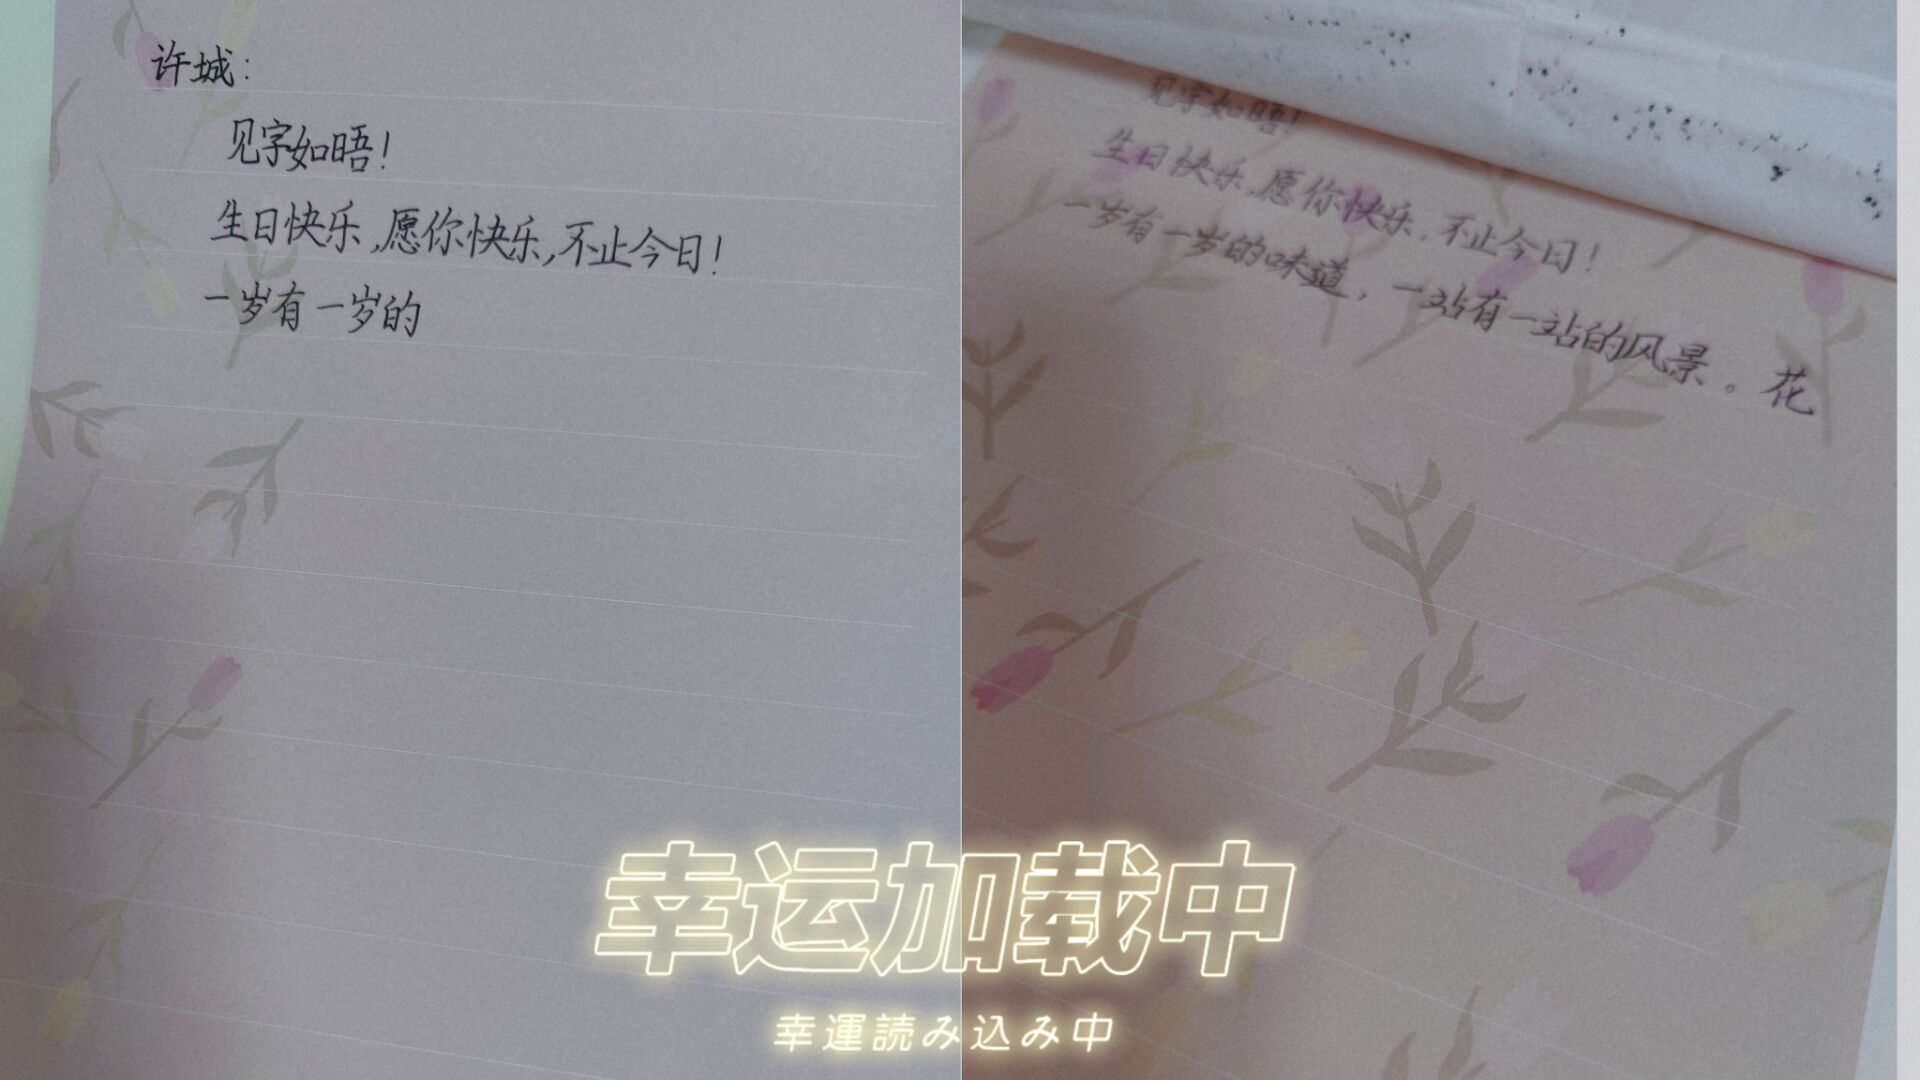 许城：
见字如晤！
生日快乐，愿你快乐，不止今日！
一岁有一岁的
见字如晤！
生日快乐，愿你快乐，不止今日！
一岁有一岁的味道，一站有一站的风景。花
幸运加载中
幸運読み込み中